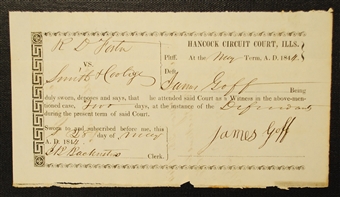 R D Foster HANCOCK CIRCUIT COURT, ILLS.
VS Pltff. At the May Term, A. D. 184
Smith & Coolidge Deft.
James Goff Being
duly sworn, deposes and says, that he attended said Court as a Witness in the above-men-
tioned case, two days, at the instance of the Defendants
during the present term of said Court.
Sworn to and subscribed before me, this
28 day of May
A. D. 184
James Goff
J B Backenstos Clerk.